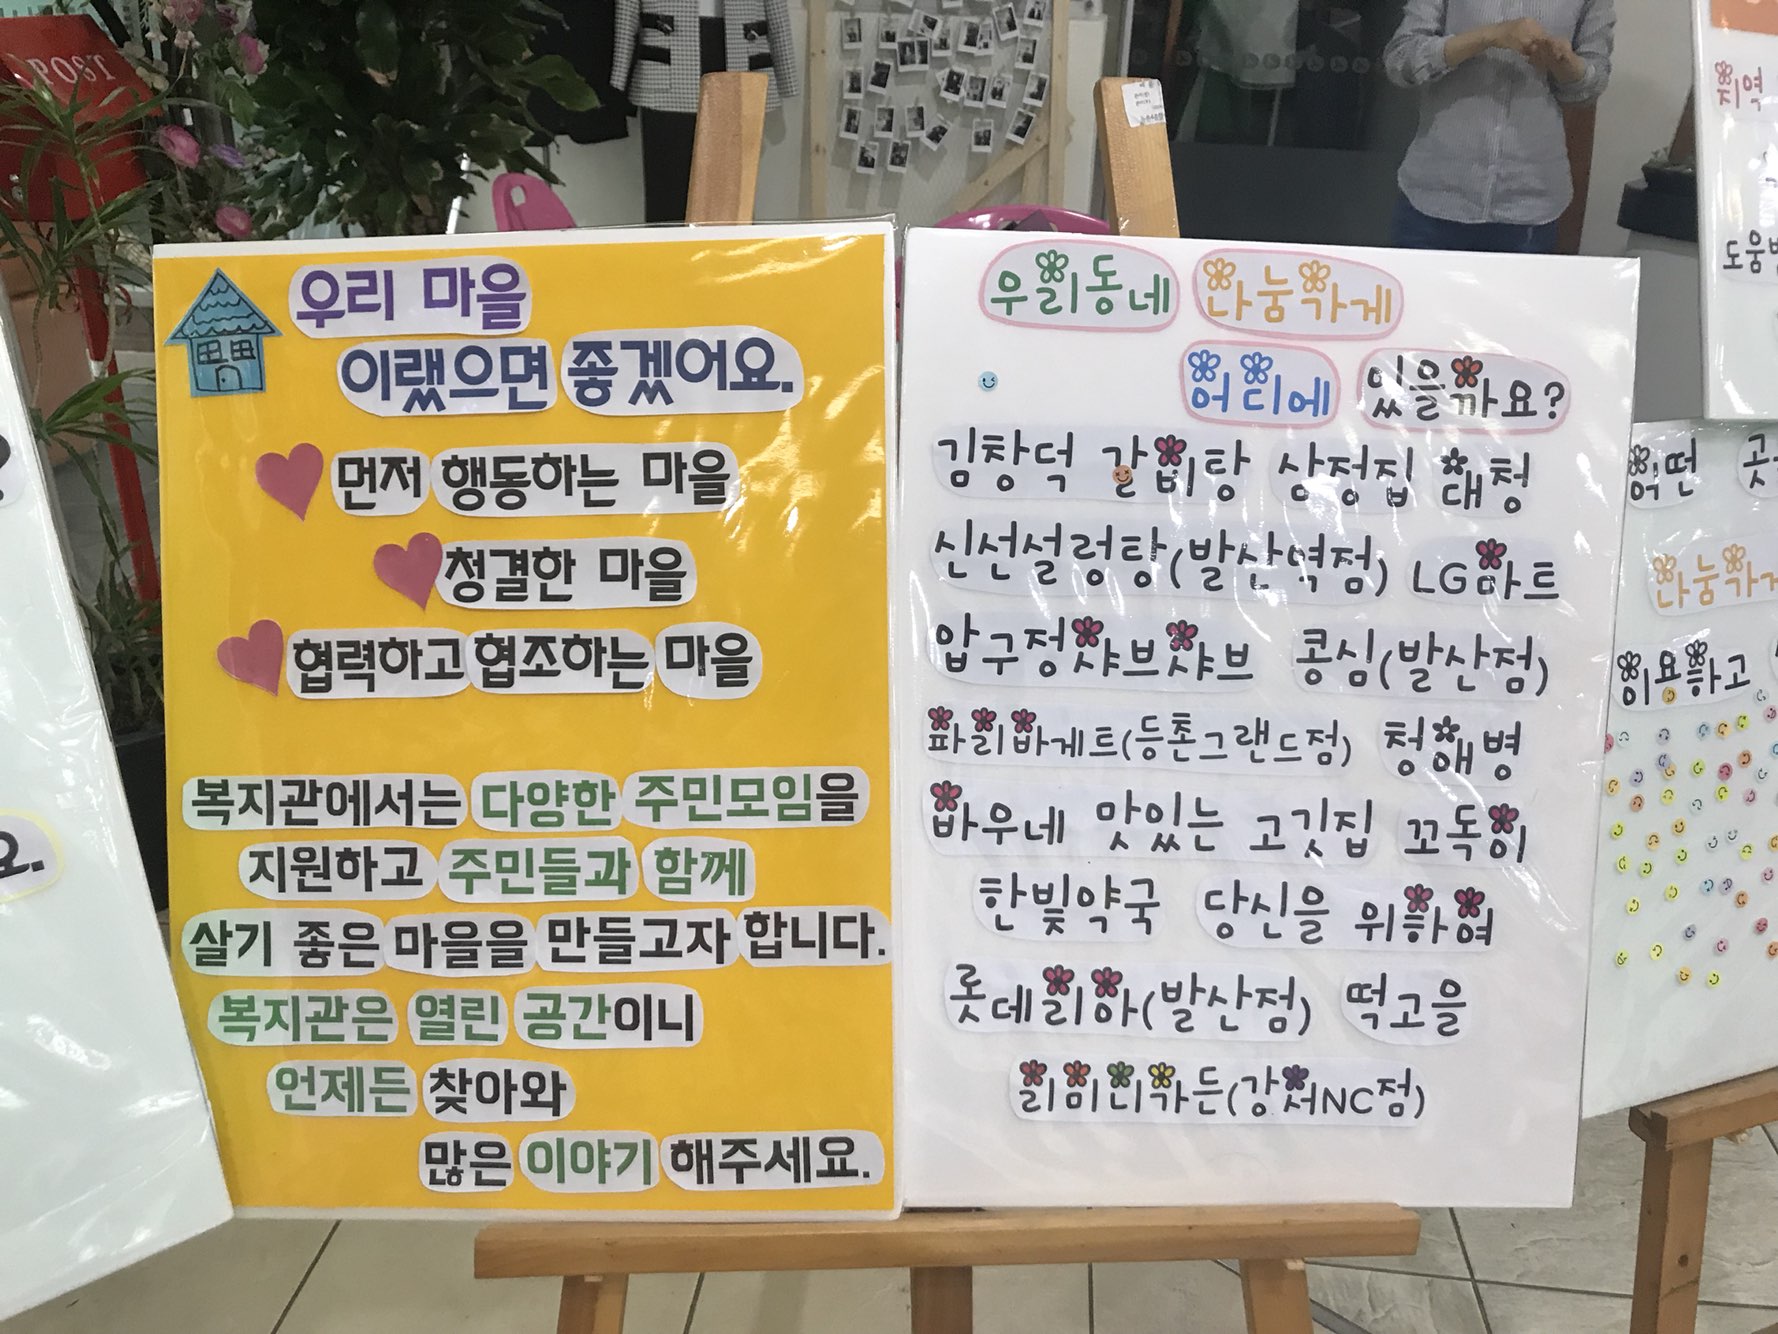 POST
우리 마을
이랬으면 좋겠어요.
먼저 행동하는 마을
청결한 마을
협력하고 협조하는 마을
복지관에서는 다양한 주민모임을
지원하고 주민들과 함께
살기 좋은 마을을 만들고자 합니다.
복지관은 열린 공간이니
언제든 찾아와
많은 이야기 해주세요.
우리동네 나눔가게
어디에 있을까요?
김창덕 갈비탕 삼정집 대청
신선설렁탕(발산역점) LG마트
압구정샤브샤브 콩심(발산점)
파리바게트(등촌그랜드점) 청해병
바우네 맛있는 고깃집 꼬독이
한빛약국 당신을 위하여
롯데리아(발산점) 떡고을
리미니가든(강서NC점)
요.
지역
어떤
나눔가게
이요하고